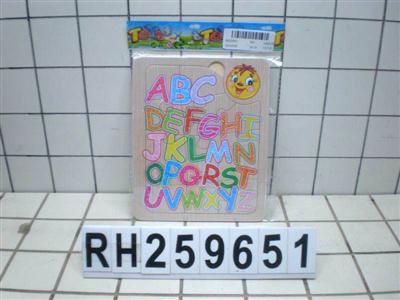 ABC
DEFGHI
JKLMN
OPQRST
UVWXYZ
RH259651